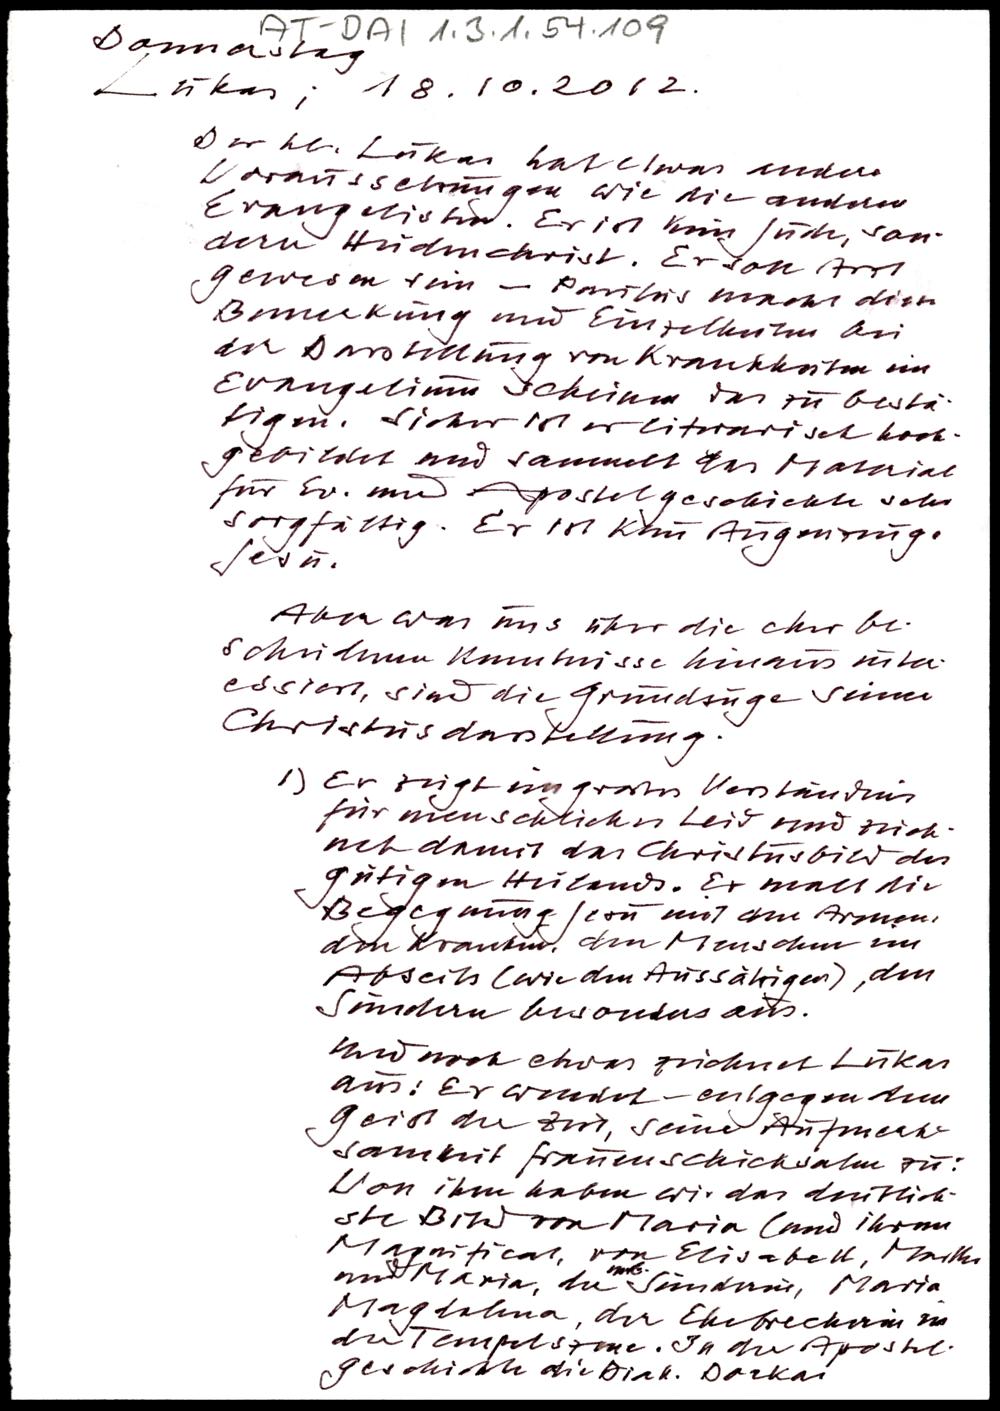 AT-DAI 1.3.1.54.109
Donnerstag
Lukas; 18.10.2012.
Der hl. Lukas hat etwas andere
Voraussetzungen wie die anderen
Evangelisten. Er ist kein Jude, son-
dern Heidenchrist. Er soll Arzt
gewesen sein – Paulus macht diese
Bemerkung und Einzelheiten bei
der Darstellung von Krankheiten im
Evangelium scheinen das zu bestä-
tigen. Sicher ist er literarisch hoch-
gebildet und sammelt das Material
für Ev. und Apostelgeschichte sehr
sorgfältig. Er ist kein Augenzeuge
Jesu.
Aber was uns über die eher be-
scheidenen Kenntnisse hinaus inter-
essiert, sind die Grundzüge seiner
Christusdarstellung.
1) Er zeigt ein grosses Verständnis
für menschliches Leid und zeich-
net damit das Christusbild des
gütigen Heilands. Er malt die
Begegnung Jesu mit den Armen,
den Kranken, den Menschen im
Abseits (wie den Aussätzigen), den
Sündern besonders aus.
Und noch etwas zeichnet Lukas
aus: Er wendet – entgegen dem
Geist der Zeit, seine Aufmerk-
samkeit Frauenschicksalen zu:
Von ihm haben wir das deutlich-
ste Bild von Maria (und ihrem
Magnificat, von Elisabeth, Martha
und Maria, der Sünderin, Maria
Magdalena, der Ehebrecherin in
der Tempelszene. In der Apostel-
geschichte die Diak. Dorkas